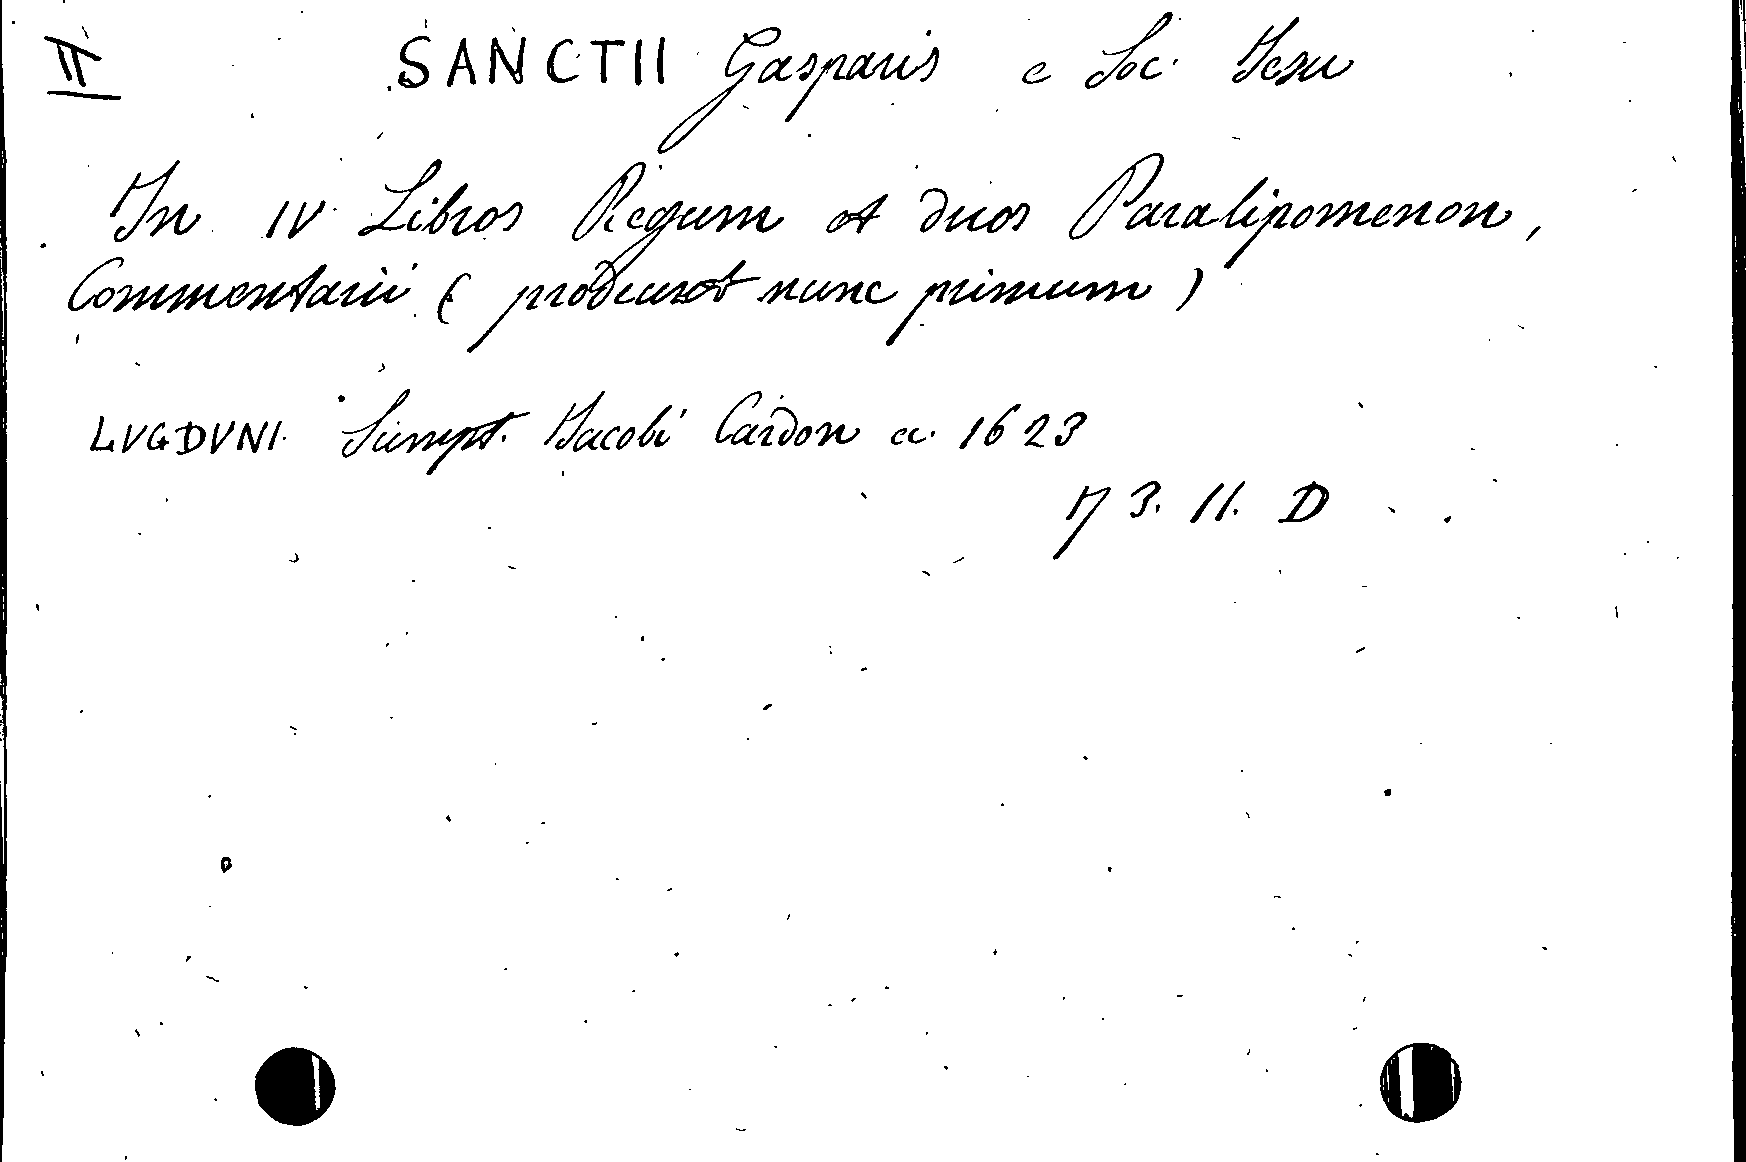 II SANCTII Gasparis e Soc. Iesu
In IV Libros Regum et duos Paralipomenon,
Commentarii ( prodeunt nunc primum )
LVGDVNI. Sumpt. Iacobi Cardon a. 1623
73. 11. D